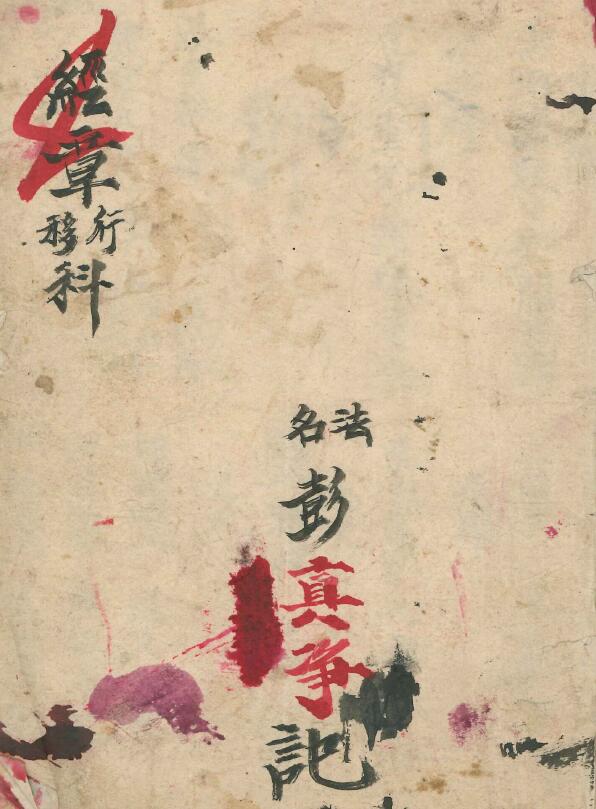 經章行移科
法名彭真争記